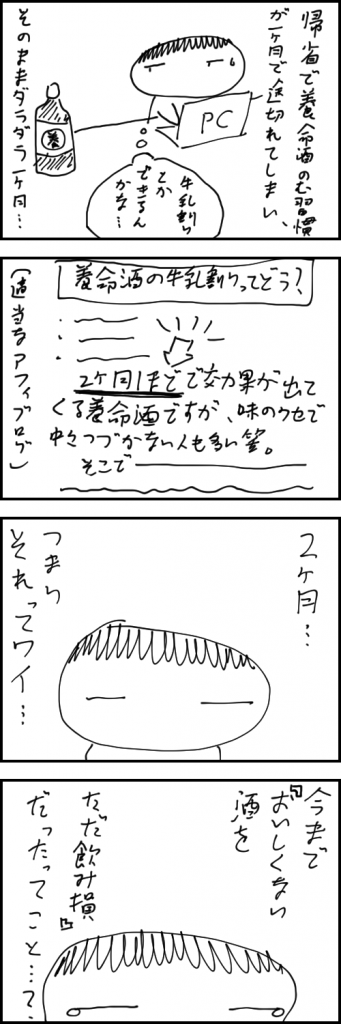 帰省で養命酒のむ習慣
が一ヶ月で途切れてしまい、
そのままダラダラ一ヶ月…
PC
養
牛乳割り
とか
できるん
かな…
養命酒の牛乳割りってどう?
2ヶ月ほどで効果が出て
くる養命酒ですが、味のクセで
中々つづかない人も多い筈。
そこで
(適当なアフィブログ)
2ヶ月…
つまり
それってワイ…
今まで
『おいしくない
酒を
ただ飲み損』
だったってこと…?